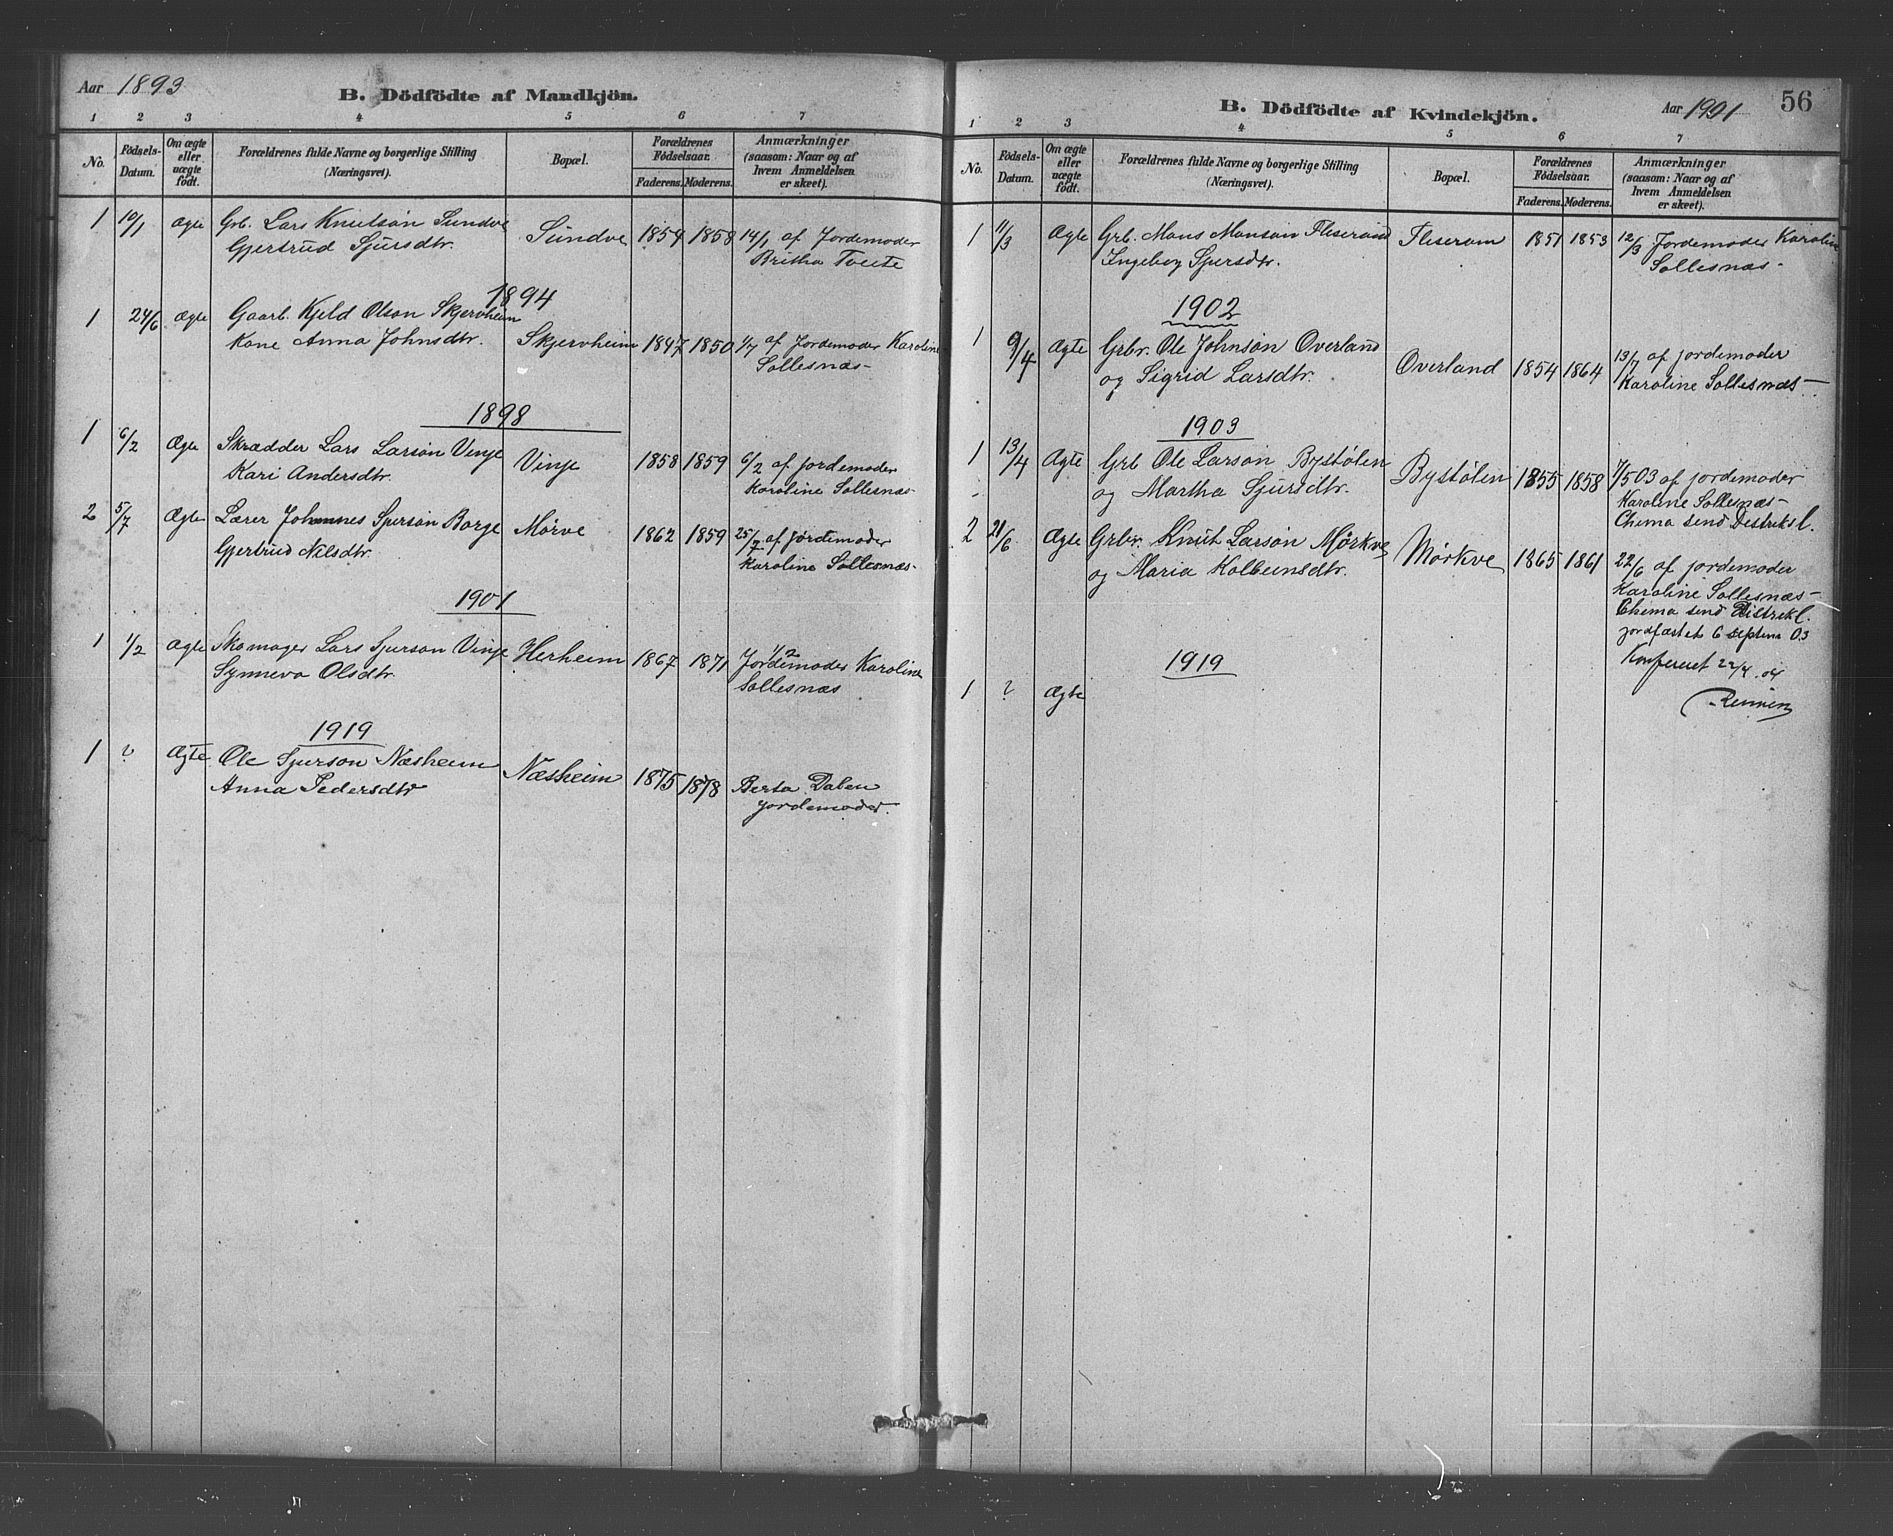 Aar 1893
B. Dödfödte af Mandkjön.
1 2 3 4 5 6 7
No. Födsels-Datum. Om ægte eller uægte født. Forældrenes fulde Navne og borgerlige Stilling (Næringsvei). Bopæl. Forældrenes Fødselsaar. Faderens. Moderens. Anmærkninger (saasom: Naar og af hvem Anmeldelsen er skeet).
1 10/1 Ægte Grb. Lars Knutson Sundve Sundve 1859 1858 14/1 af Jordemoder
Gjertrud Sjursdtr. Britha Tveite
1894
1 24/6 Ægte Gaarb. Kjeld Olson Skjervheim
Kone Anna Johnsdtr. Skjervheim 1847 1850 1/7 af Jordemoder Karoline
Sollesnæs-
1898
1 6/2 Ægte Skrædder Lars Larson Vinje Vinje 1858 1859 6/2 af jordemoder
Kari Andersdtr. Karoline Sollesnæs-
2 5/7 Ægte Lærer Johannes Sjurson Borge Mørve 1862 1859 25/7 af jordemoder
Gjertrud Nilsdtr. Karoline Sollesnæs-
1901
1 1/2 Ægte Skomager Lars Sjurson Vinje Herheim 1867 1871 1/2 Jordemoder Karoline
Synneva Olsdtr. Sollesnæs
1919
1 ? Ægte Ole Sjurson Næsheim Næsheim 1875 1878 Berta Dalen
Anna Pedersdtr jordemoder.
56
B. Dödfödte af Kvindekjön.
Aar 1901
1 2 3 4 5 6 7
No. Födsels-Datum. Om ægte eller uægte født. Forældrenes fulde Navne og borgerlige Stilling (Næringsvei). Bopæl. Forældrenes Fødselsaar. Faderens. Moderens. Anmærkninger (saasom: Naar og af hvem Anmeldelsen er skeet).
1 11/3 Ægte Grb. Mons Monson Fliseram Fliseram 1851 1853 12/3 Jordemoder Karoline
Ingeborg Sjursdtr. Sollesnæs-
1902
1 9/4 Ægte Grbr. Ole Johnson Overland Overland 1854 1864 13/7 af jordemoder
og Sigrid Larsdtr. Karoline Sollesnæs-
1903
1 13/4 Ægte Grb Ole Larson Bystølen Bystølen 1855 1858 1/5 03 af jordemoder
og Martha Sjursdtr. Karoline Sollesnæs-
Chema send Distriksl.
2 21/6 Ægte Grbr. Knut Larson Mørkve Mørkve 1865 1861 22/6 af jordemoder
og Maria Kolbeinsdtr. Karoline Sollesnæs-
Chema send Distrikl.
jordfæstet 6 septem 03
Konfereret 22/4 .04
1919
1 ? Ægte